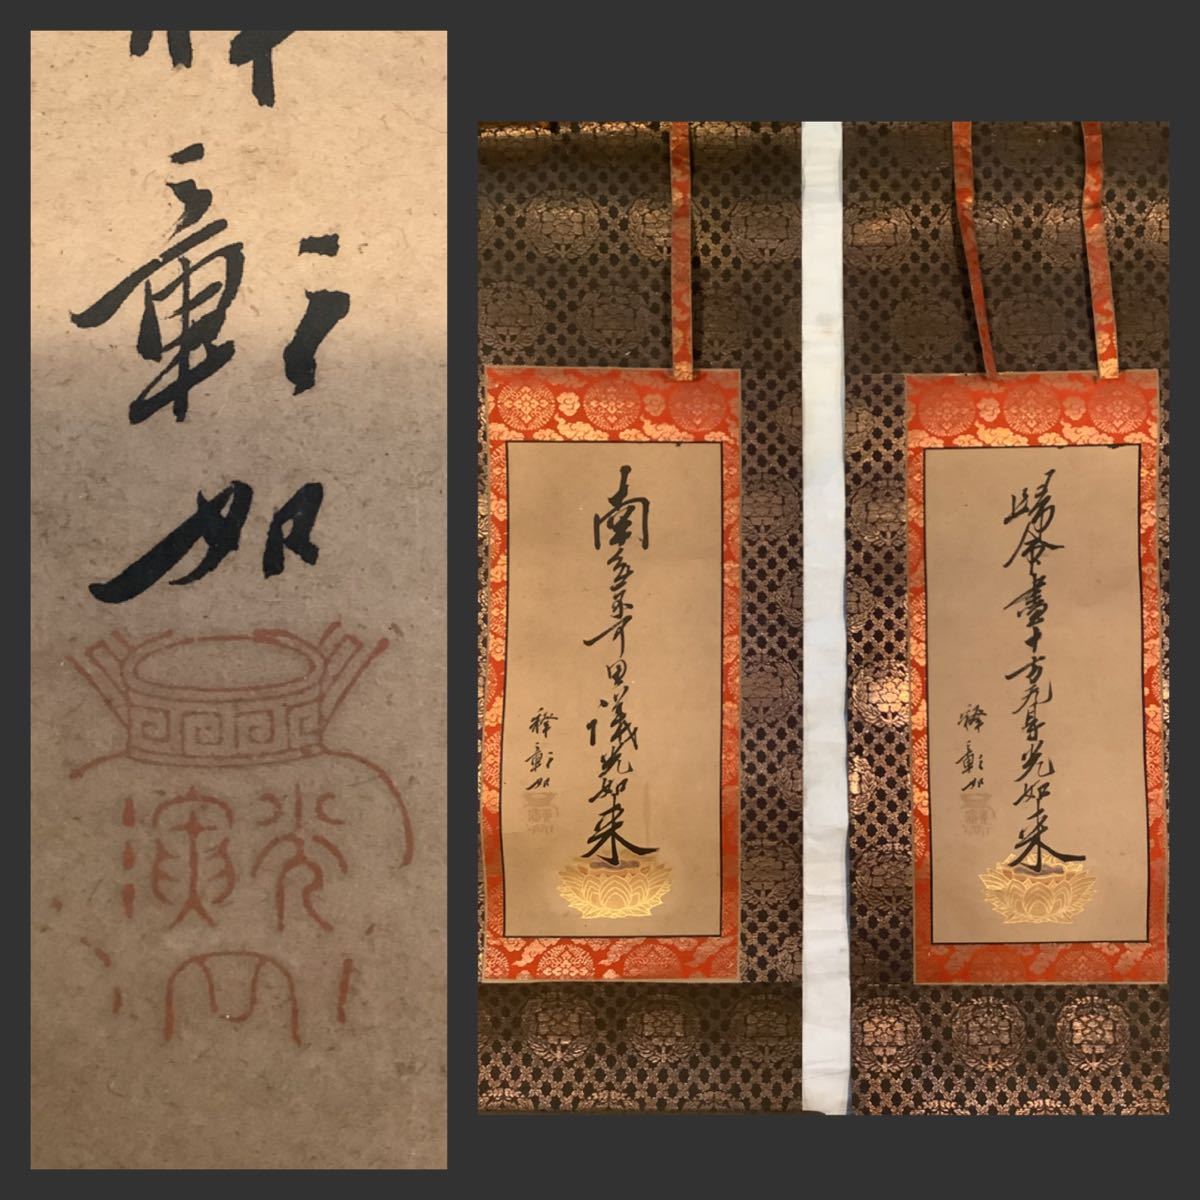 彰
如
南无不可思議光如来
釋彰如
歸命盡十方无㝵光如来
釋彰如